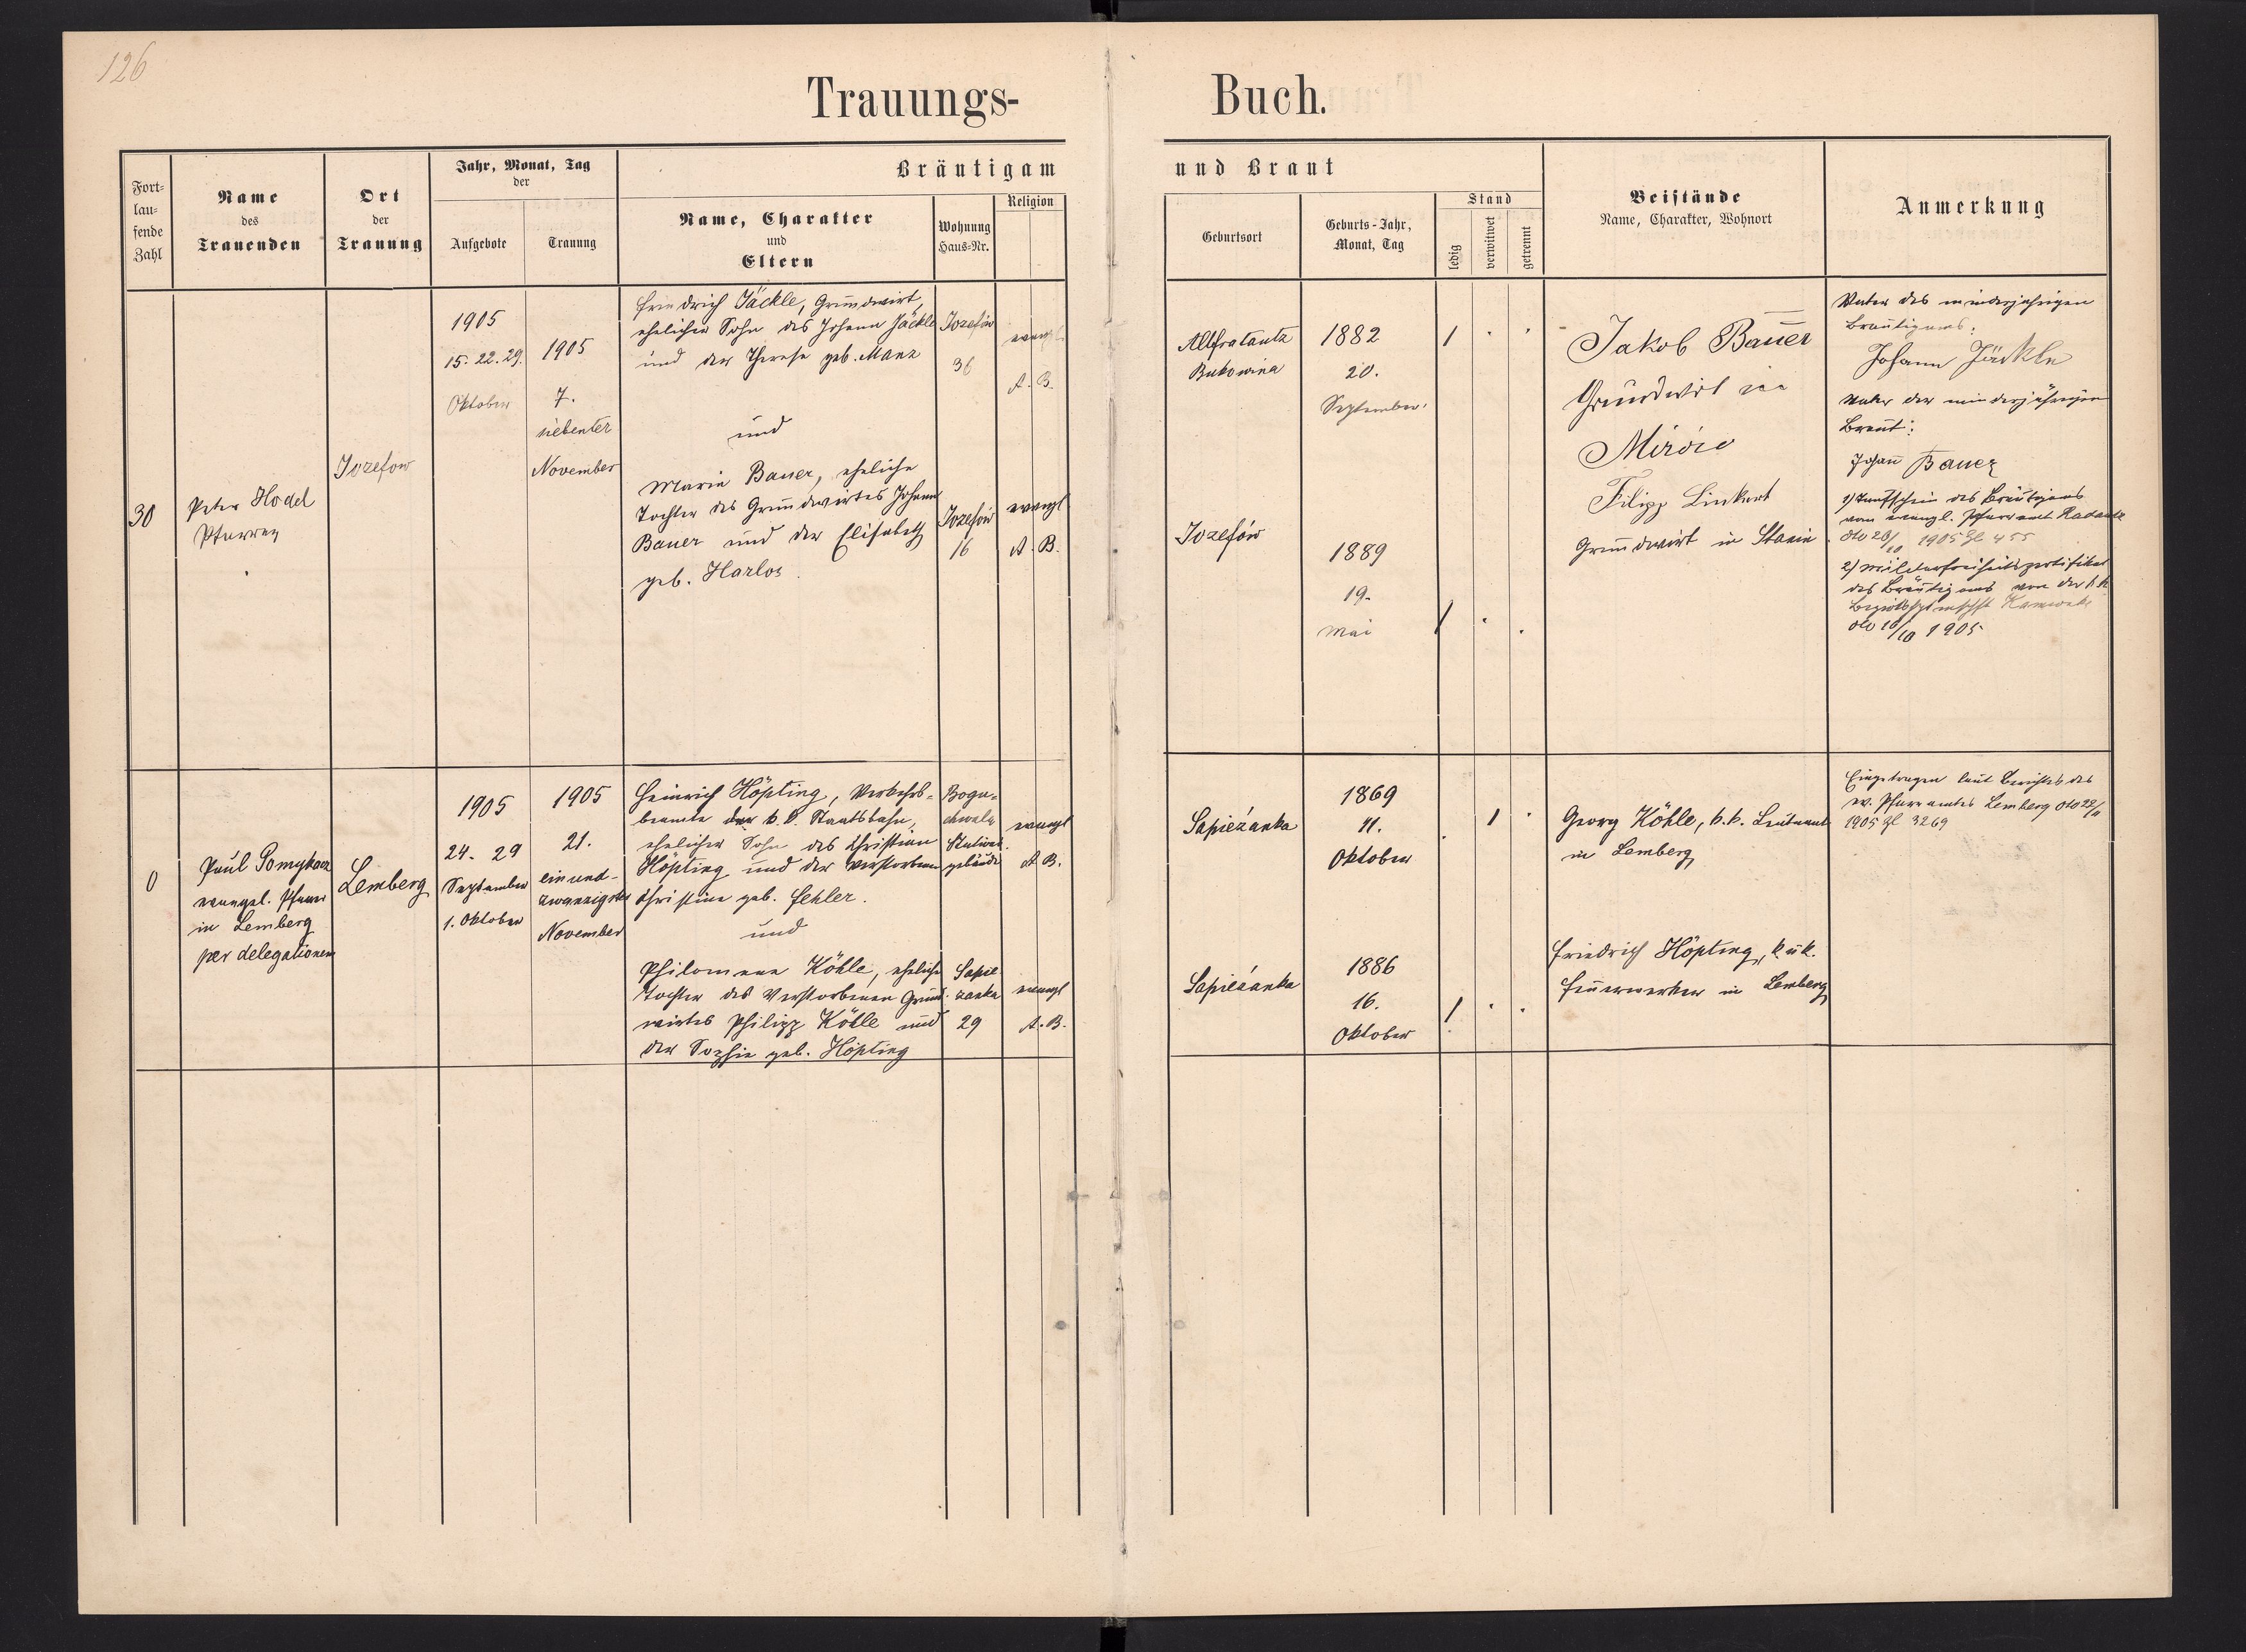 126
Trauungs-
Buch.
Fort-
lau-
fende
Zahl
Name
des
Trauenden
Ort
der
Trauung
Jahr, Monat, Tag
der
Aufgebote
Trauung
Bräutigam
und Braut
Name, Charakter
und
Eltern
Wohnung
Haus-Nr.
Religion
Geburtsort
Geburts-Jahr,
Monat, Tag
Stand
ledig
verwitwet
getrennt
Beistände
Name, Charakter, Wohnort
Anmerkung
30
Peter Hodel
Pfarrer
Jozefow
1905
15. 22. 29.
Oktober
1905
7.
siebenter
November
Friedrich Jäckle, Grundwirt,
ehelicher Sohn des Johann Jäckle
und der Therese geb. Manz
und
Marie Bauer, eheliche
Tochter des Grundwirtes Johann
Bauer und der Elisabeth
geb. Harlos
Jozefów
36
Jozefów
16
evangl.
A. B.
evangl
A. B.
Altfratautz
Bukowina
Jozefów
1882
20.
September
1889
19.
Mai
Jakob Bauer
Grundwirt in
Mirów
Filipp Linkert
Grundwirt in Stanin
Vater des minderjährigen
Bräutigams:
Johann Jäckle
Vater der minderjährigen
Braut:
Johann Bauer
1) Taufschein des Bräutigams
vom evangl. Pfarramt Radautz
dto 20/10 1905 Zl 455
2)
des Bräutigams von der k.k.
dto 10/10 1905
0
Paul Pomykacz
evangel. Pfarrer
in Lemberg
per delegationem
Lemberg
1905
24. 29
September
1. Oktober
1905
21.
einund-
zwanzigster
November
Heinrich Höpting, Verkehrs-
beamte der k.k. Staatsbahn,
ehelicher Sohn des Christian
Höpting und der verstorbenen
Christine geb. Fehler.
und
Philomena Köhle, eheliche
Tochter des verstorbenen Grund-
wirtes Philipp Köhle und
der Sophie geb. Höpting
Bogu-
chwala
Stations
gebäude
Sapie
zanka
29
evangl
A. B.
evangl
A. B.
Sapieżanka
Sapieżanka
1869
11.
Oktober
1886
16.
Oktober
Georg Köhle, k.k. Leutnant
in Lemberg
Friedrich Höpting, k. u. k.
Feuerwerker in Lemberg
Eingetragen laut Berichts des
ev. Pfarramtes Lemberg dto 22/11
1905 Zl 3269